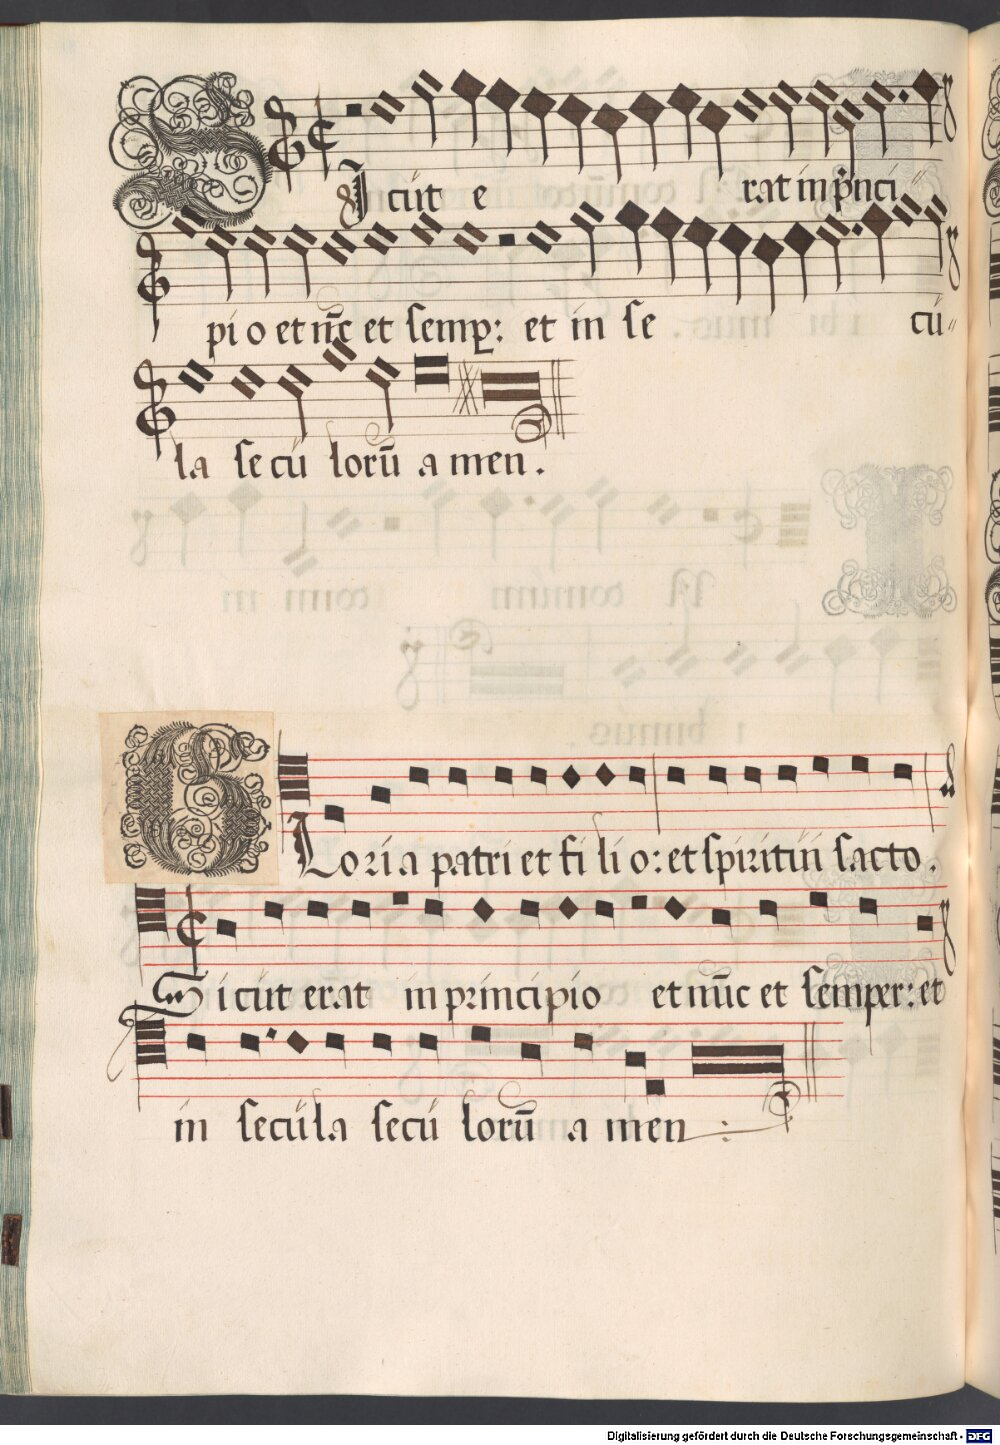 Sicut e rat in pͥnci
pi o et nūc et semp: et in se cu
la se cu lorū a men.
Gloria patri et fi li o: et spiritui sācto.
Sicut erat in principio et nūc et semper: et
in secula secu lorū a men :
Digitalisierung gefördert durch die Deutsche Forschungsgemeinschaft - DFG